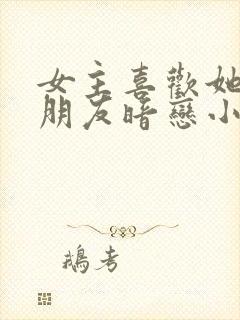 女主喜歡她
朋友暗戀小
鵝考